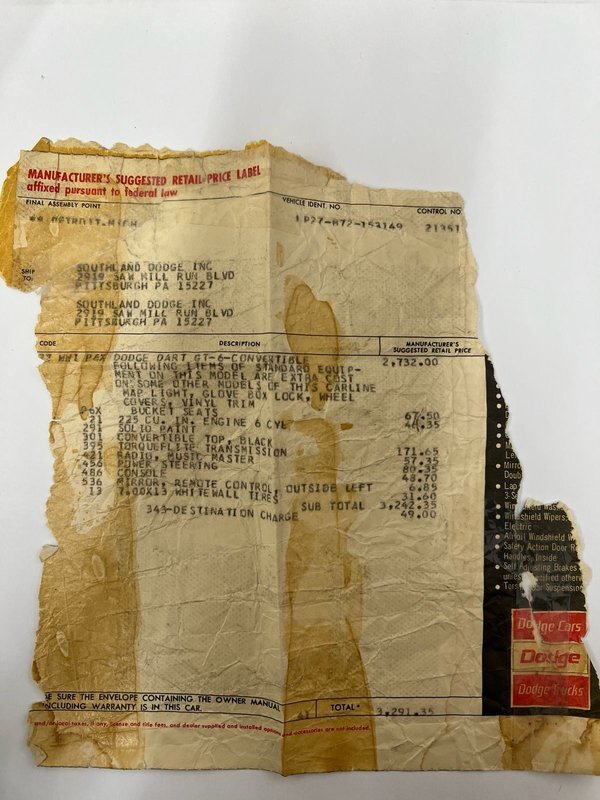 MANUFACTURER'S SUGGESTED RETAIL PRICE LABEL
affixed pursuant to federal law
FINAL ASSEMBLY POINT
VEHICLE IDENT. NO.
CONTROL NO.
DETROIT-MICH
LP27-B72-153149 21351
SHIP TO:
SOUTHLAND DODGE INC
2919 SAW MILL RUN BLVD
PITTSBURGH PA 15227
SOUTHLAND DODGE INC
2919 SAW MILL RUN BLVD
PITTSBURGH PA 15227
CODE DESCRIPTION MANUFACTURER'S SUGGESTED RETAIL PRICE
WW1 P6X DODGE DART GT-6-CONVERTIBLE 2,732.00
FOLLOWING ITEMS OF STANDARD EQUIP-
MENT ON THIS MODEL ARE EXTRA COST
ON SOME OTHER MODELS OF THIS CARLINE
MAP LIGHT, GLOVE BOX LOCK, WHEEL
COVERS, VINYL TRIM
P6X BUCKET SEATS
21 225 CU. IN. ENGINE 6 CYL 67.50
291 SOLID PAINT
301 CONVERTIBLE TOP, BLACK
395 TORQUEFLITE TRANSMISSION 171.65
421 RADIO, MUSIC MASTER 57.35
456 POWER STEERING 80.35
486 CONSOLE 48.70
536 MIRROR, REMOTE CONTROL, OUTSIDE LEFT 6.85
13 7.00X13 WHITEWALL TIRES 31.60
SUB TOTAL 3,242.35
343-DESTINATION CHARGE 49.00
Mirro
Doub
Lap
3-S
Windshield Wipers:
Electric
Windshield W
Safety Action Door
Handles, Inside
Self Adjusting Brakes
Suspension
Dodge Cars
Dodge
Dodge Trucks
BE SURE THE ENVELOPE CONTAINING THE OWNER MANUAL
INCLUDING WARRANTY IS IN THIS CAR.
TOTAL* 3,291.35
and/or local taxes, if any, license and title fees, and dealer supplied and installed options and accessories are not included.